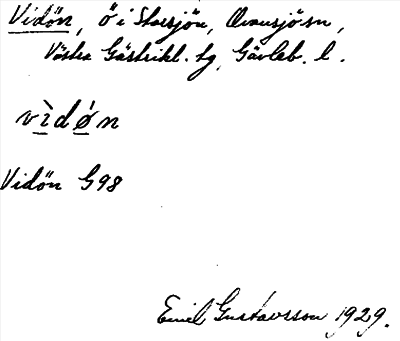 Vidön, ö i Storsjön, Ovansjö sn,
Västra Gästrikl. tg, Gävleb. l.
vìdǿn
Vidön G98
Emil Gustavsson 1929.